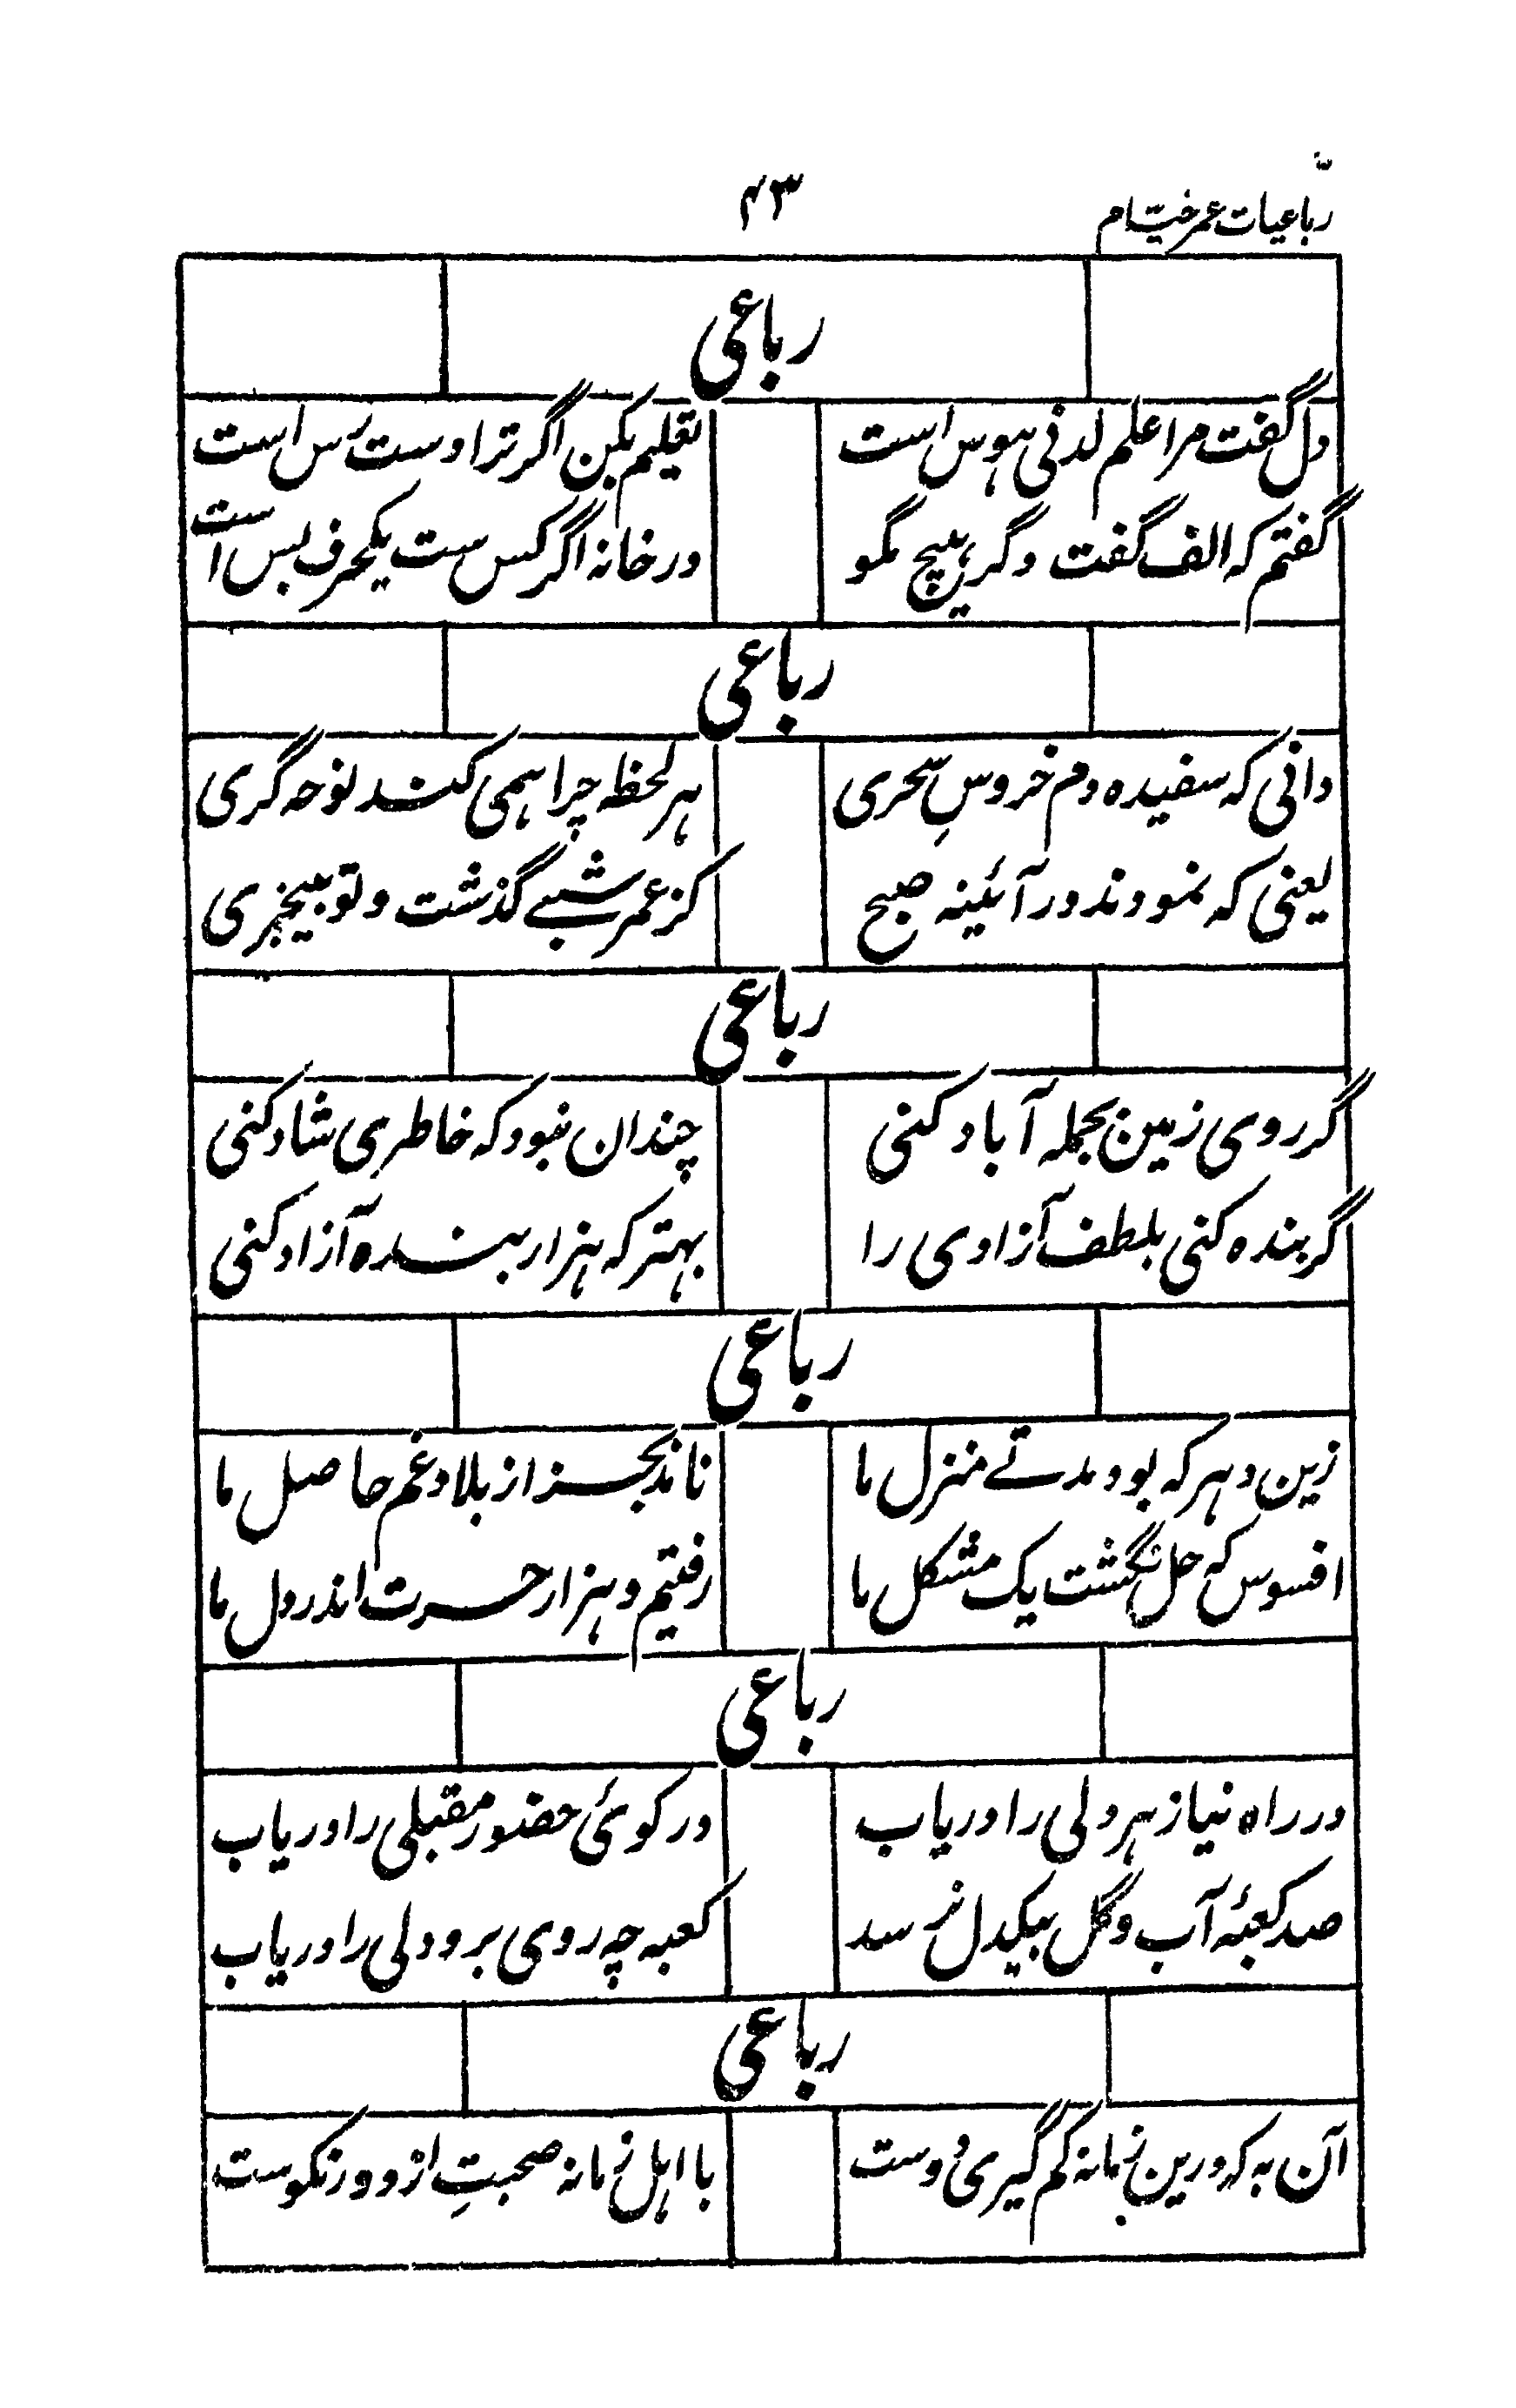 رباعیات عمر خیّام
۴۳
رباعی
دل گفت مرا علم لدنی هوس است
تعلیم بکن اگر ترا دست رس است
گفتم که الف گفت دگر هیچ مگو
در خانه اگر کس ست یکحرف بس است
رباعی
دانی که سفیده دم خروسِ سحری
هر لحظه چرا همی کند نوحه گری
یعنی که نمودند در آئینه صبح
کز عمر شبے گذشت و تو بیخبری
رباعی
گر روی زمین بجمله آباد کنی
چندان نبود که خاطری شاد کنی
گر بنده کنی بلطف آزادی را
بهتر که هزار بنده آزاد کنی
رباعی
زین دهر که بود مدتے منزل ما
نامد بجز از بلا و غم حاصل ما
افسوس که حل نگشت یک مشکل ما
رفتیم و هزار حسرت اندر دل ما
رباعی
در راه نیاز هر دلی را دریاب
در کوئی حضور مقبلی را دریاب
صد کعبهٔ آب و گل بیکدل نرسد
کعبه چه روی برو دلی را دریاب
رباعی
آن به که درین زمانه کم گیری دوست
با اهل زمانه صحبتِ از دور نکوست